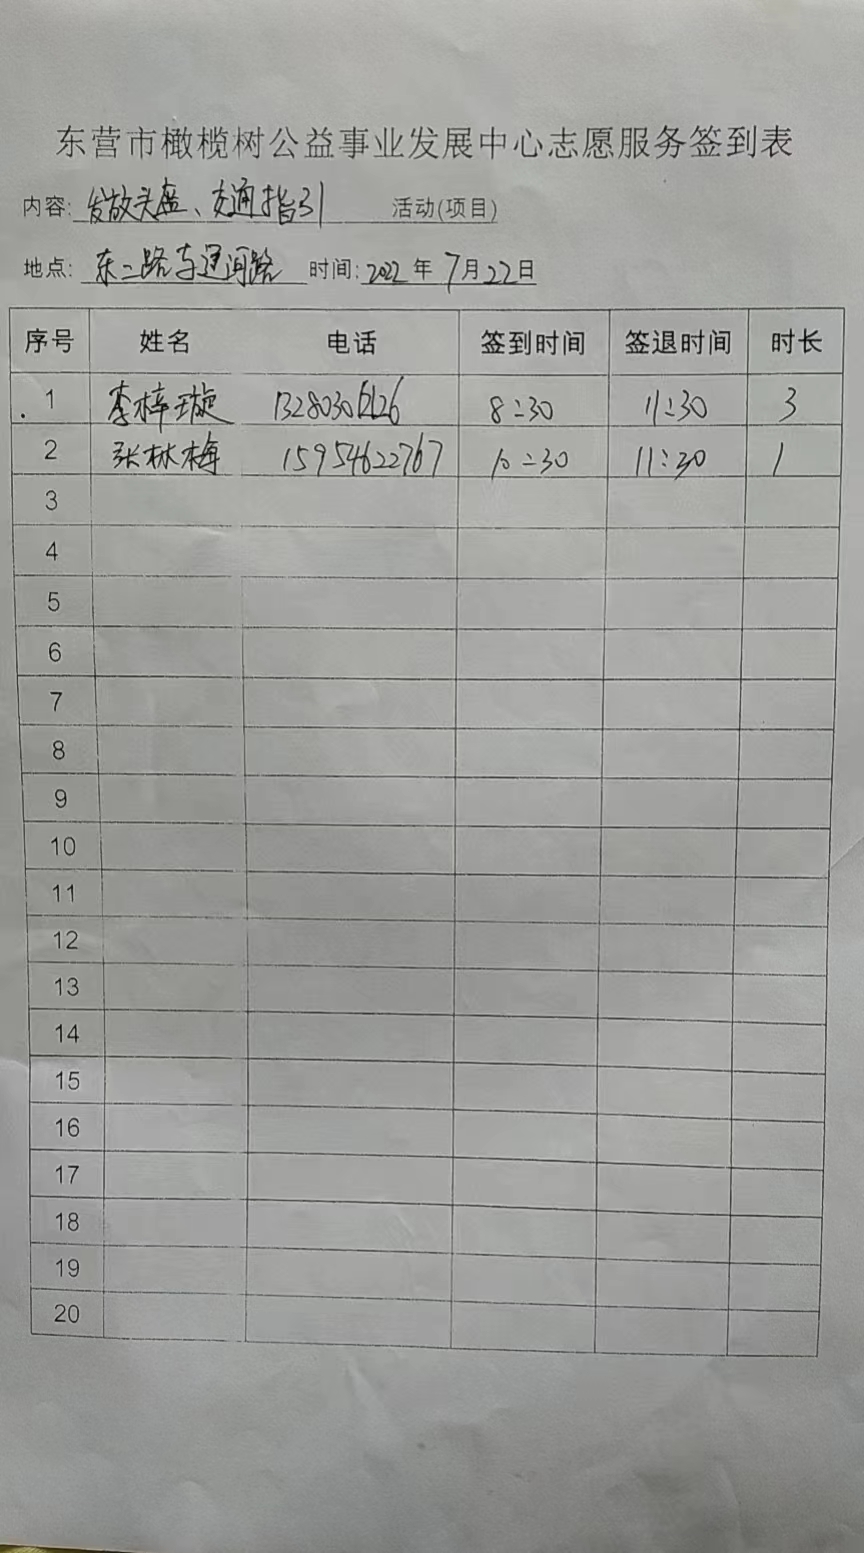 东营市橄榄树公益事业发展中心志愿服务签到表
内容: 发放头盔、交通指引 活动(项目)
地点: 东二路与运河路 时间: 2022 年 7 月 22 日
序号 姓名 电话 签到时间 签退时间 时长
1 李梓璇 13280306126 8:30 11:30 3
2 张林梅 15954622767 10:30 11:30 1
3
4
5
6
7
8
9
10
11
12
13
14
15
16
17
18
19
20